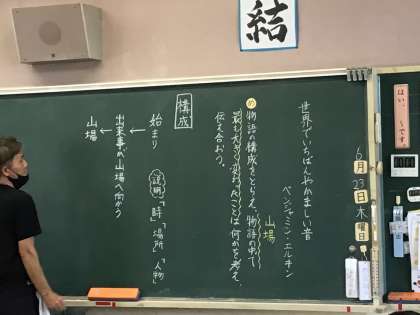 結
はい、〜です。
6月23日木曜日
世界でいちばんやかましい音
ベンジャミン・エルキン
め 物語の構成をとらえ、物語の中で
山場
最も大きく変わったことは何かを考え、
伝え合おう。
構成
始まり
説明「時」「場所」「人物」
出来事が山場へ向かう
山場